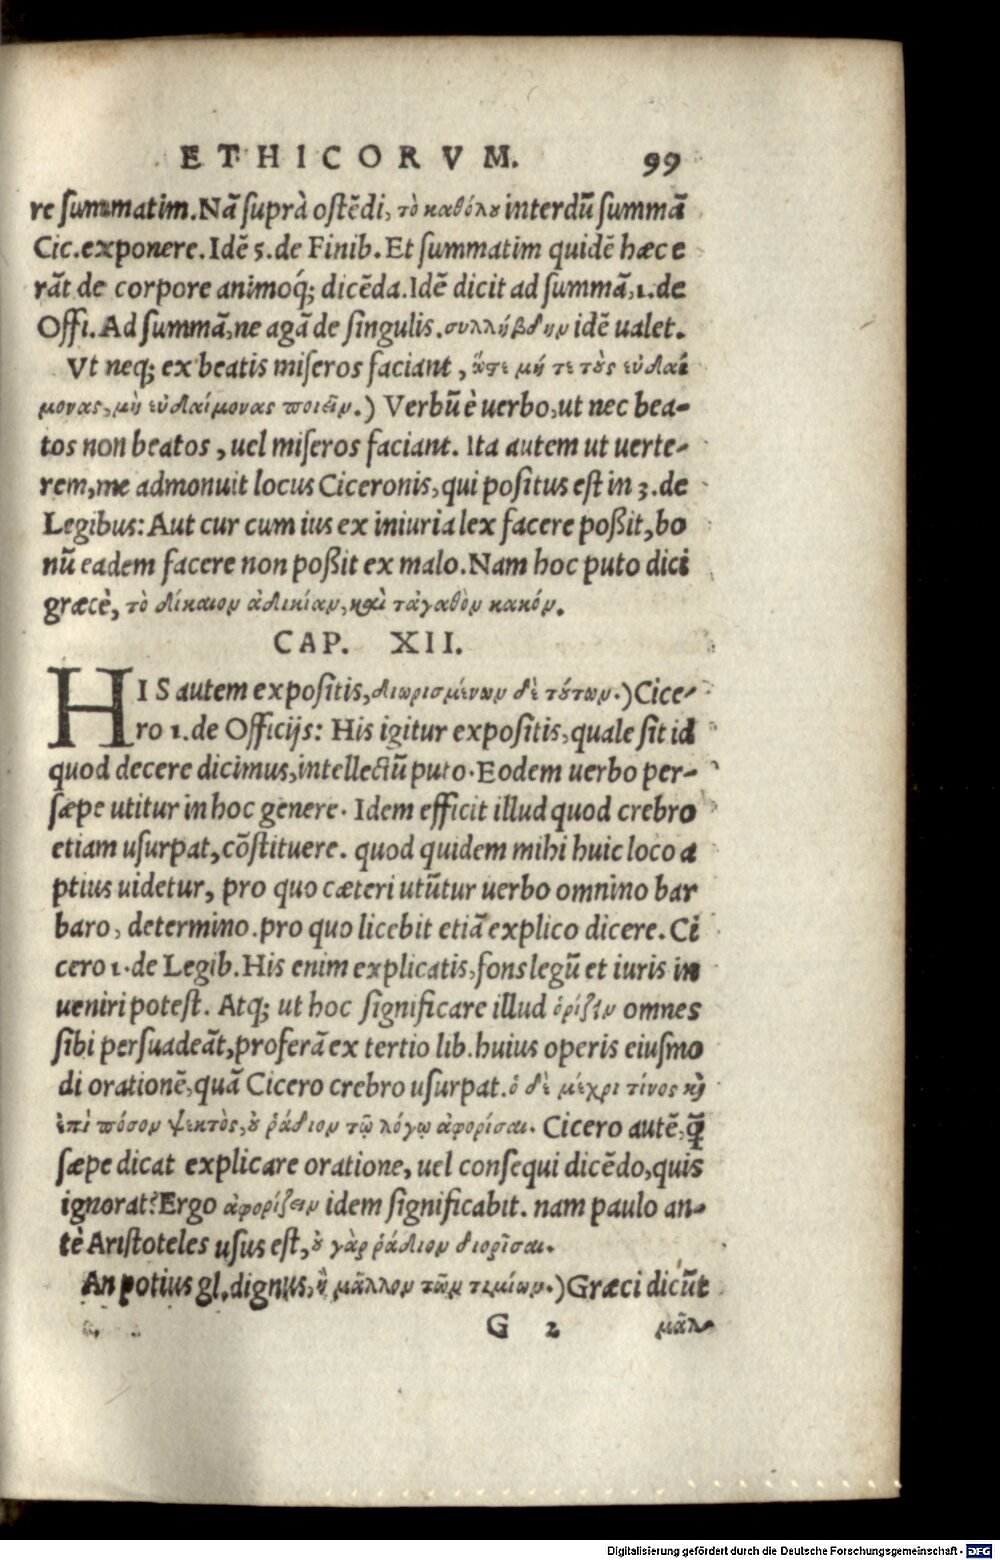 ETHICORVM. 99
re summatim. Nā suprà ostēdi, τὸ καθόλου interdū summā
Cic. exponere. Idē 5. de Finib. Et summatim quidē hæc e
rāt de corpore animoq́; dicēda. Idē dicit ad summā, 1. de
Offi. Ad summā, ne agā de singulis. συλλήβδην idē ualet.
Vt neq; ex beatis miseros faciant, ὥστε μή τε τοὺς εὐδαί
μονας, μὴ εὐδαίμονας ποιεῖν.) Verbū è uerbo, ut nec bea-
tos non beatos, uel miseros faciant. Ita autem ut uerte-
rem, me admonuit locus Ciceronis, qui positus est in 3. de
Legibus: Aut cur cum ius ex iniuria lex facere poßit, bo
nū eadem facere non poßit ex malo. Nam hoc puto dici
græcè, τὸ δίκαιον ἀδικίαν, καὶ τἀγαθὸν κακόν.
CAP. XII.
HIS autem expositis, διωρισμένων δὲ τούτων.) Cice-
ro 1. de Officijs: His igitur expositis, quale sit id
quod decere dicimus, intellectū puto. Eodem uerbo per-
sæpe utitur in hoc genere. Idem efficit illud quod crebro
etiam usurpat, cōstituere. quod quidem mihi huic loco a
ptius uidetur, pro quo cæteri utūtur uerbo omnino bar
baro, determino. pro quo licebit etiā explico dicere. Ci
cero 1. de Legib. His enim explicatis, fons legū et iuris in
ueniri potest. Atq; ut hoc significare illud ὁρίζειν omnes
sibi persuadeāt, proferā ex tertio lib. huius operis eiusmo
di orationē, quā Cicero crebro usurpat. ὁ δὲ μέχρι τίνος καὶ
ἐπὶ πόσον ψεκτὸς, οὐ ῥάδιον τῷ λόγῳ ἀφορίσαι. Cicero autē, q̄
sæpe dicat explicare oratione, uel consequi dicēdo, quis
ignorat? Ergo ἀφορίζειν idem significabit. nam paulo an-
tè Aristoteles usus est, οὐ γὰρ ῥάδιον διορῖσαι.
An potius gl. dignus, ἢ μᾶλλον τῶν τιμίων.) Græci dicūt
G 2 μᾶλ-
Digitalisierung gefördert durch die Deutsche Forschungsgemeinschaft - DFG